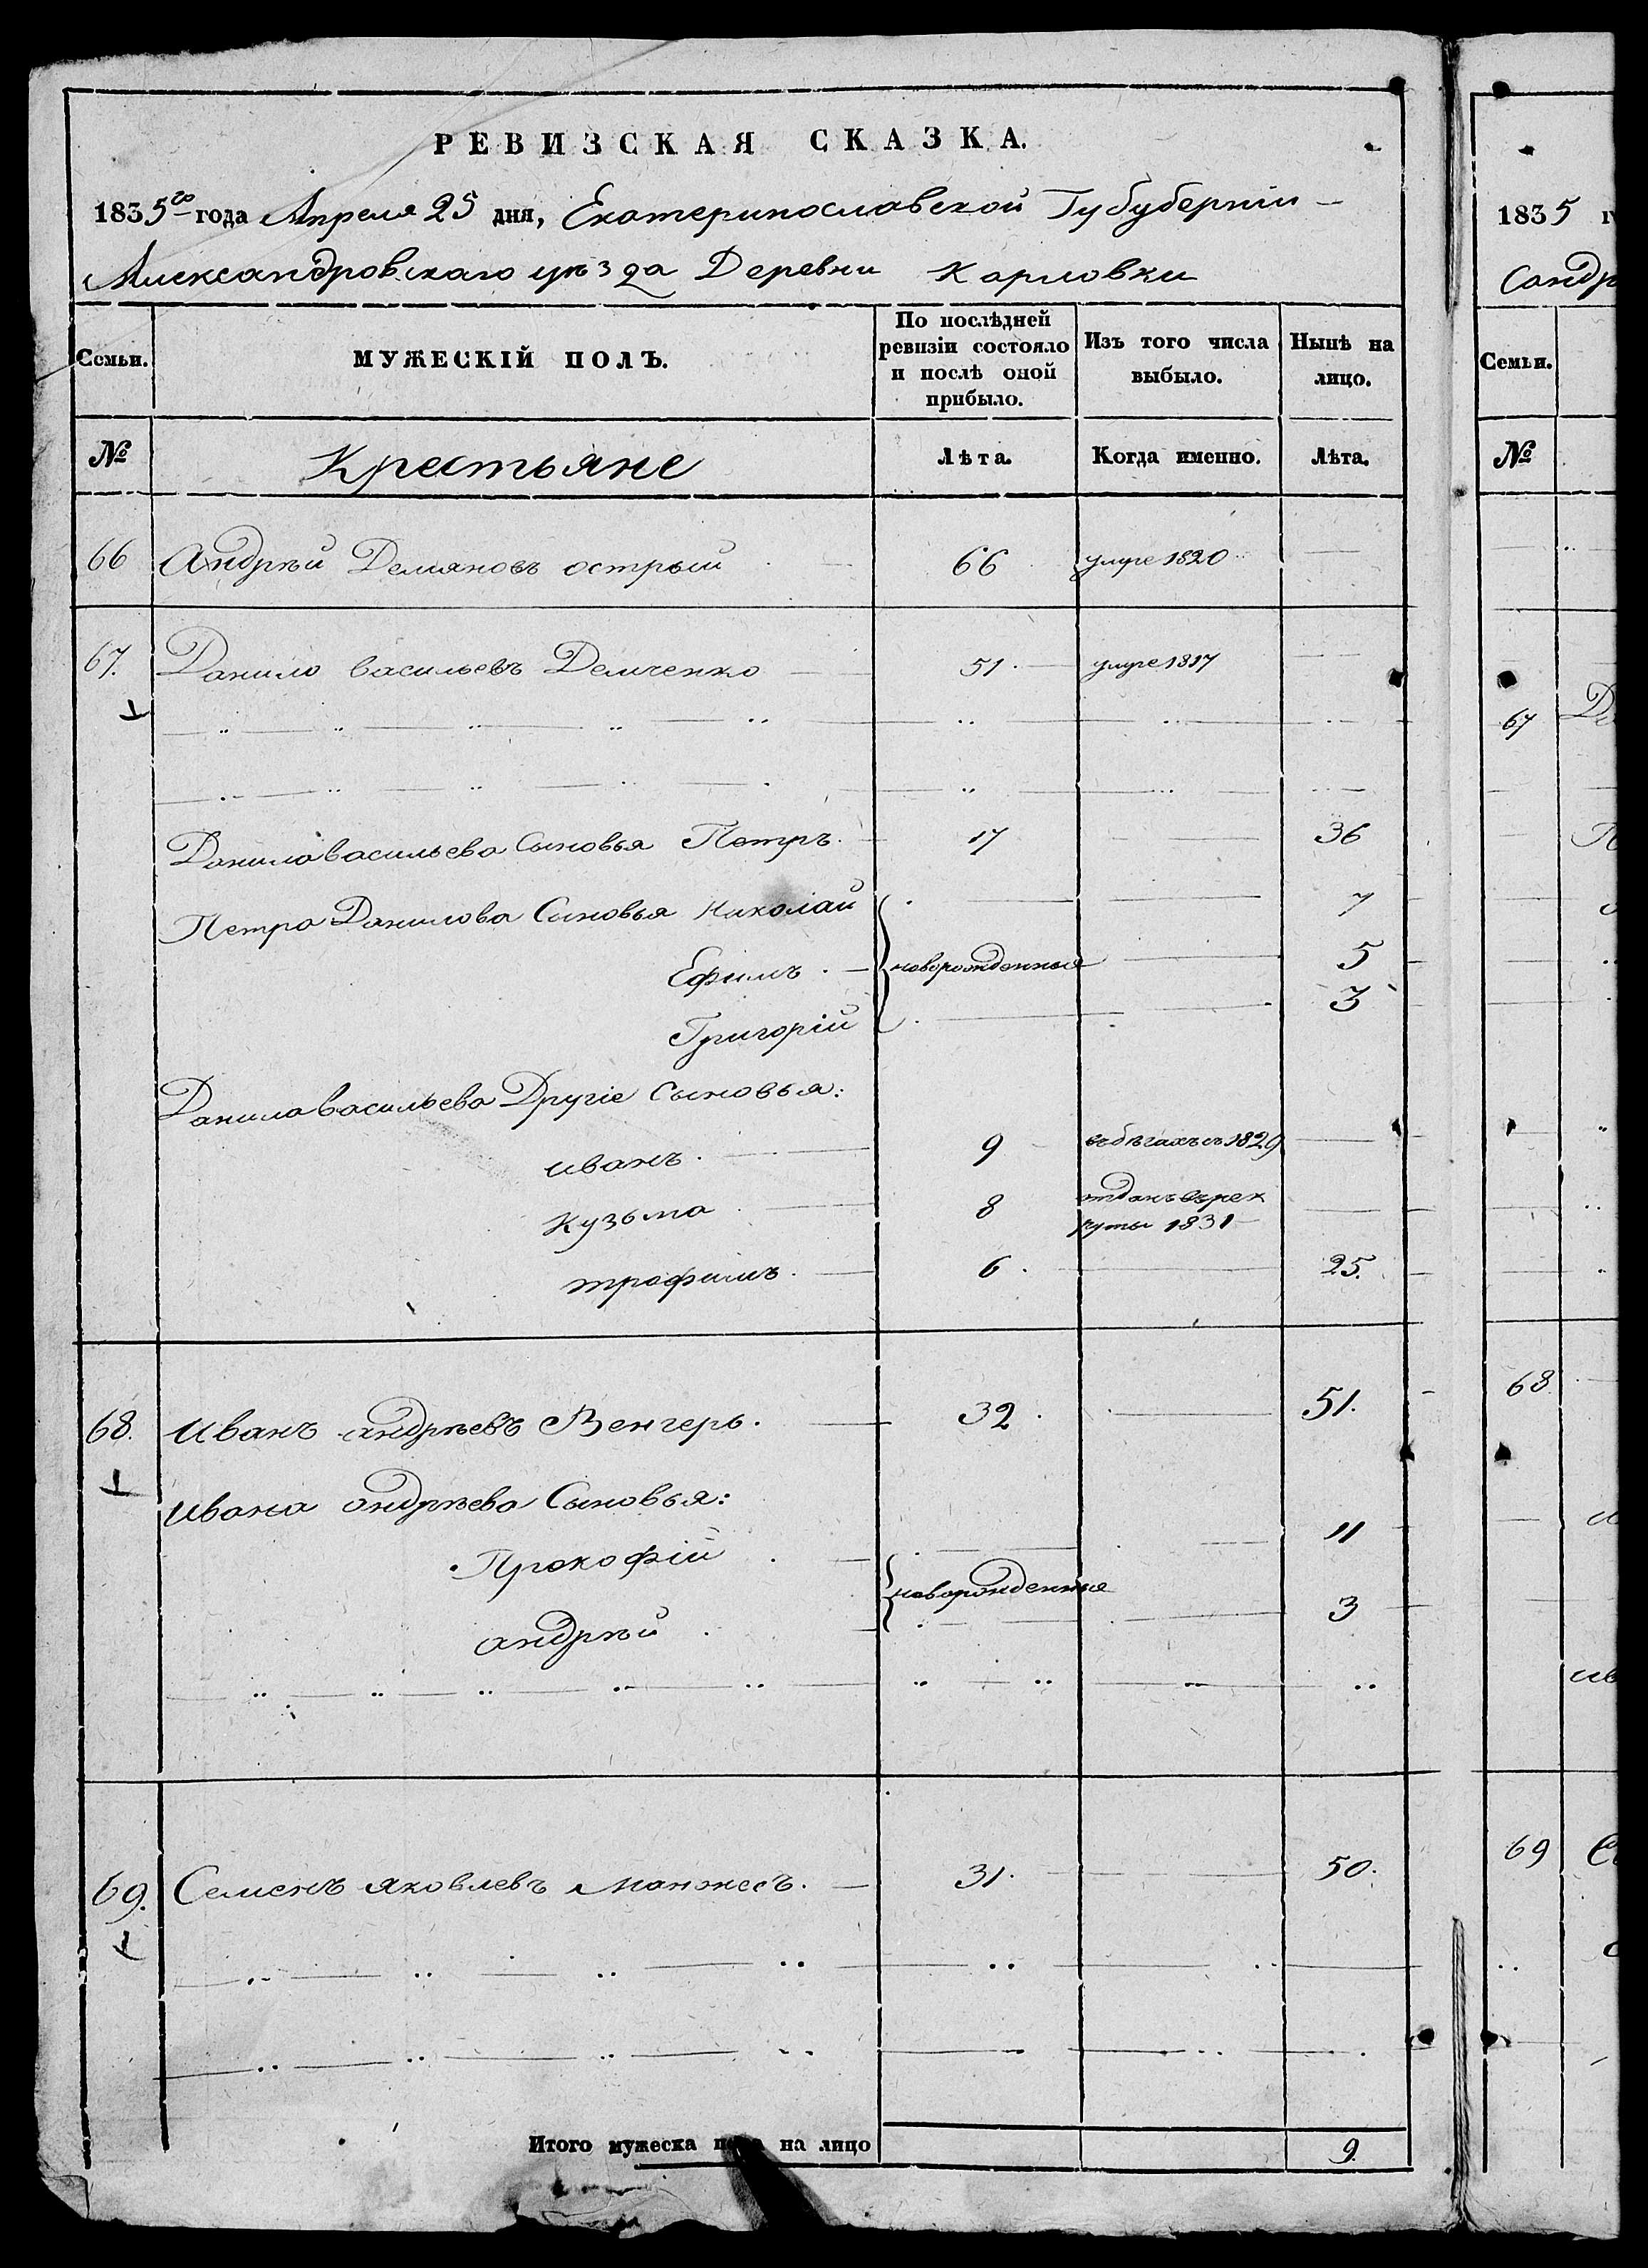 РЕВИЗСКАЯ СКАЗКА.
1835го года Апреля 25 дня, Екатеринославской Губуберніи
Александровскаго уѣзда Деревни Карловки
Семьи. МУЖЕСКІЙ ПОЛЪ. По послѣдней ревизіи состояло и послѣ оной прибыло. Изъ того числа выбыло. Нынѣ на лицо.
№ Крестьяне Лѣта. Когда именно. Лѣта.
66 Андрѣй Демяновъ острый 66 умре 1820
67. Данило васильевъ Демченко 51. умре 1817
Данила васильева Сыновья Петръ. 17 36
Петра Данилова Сыновья Николай 7
Ефимъ. новорожденныя 5
Григорій 3
Данила васильева Другіе Сыновья:
иванъ. 9 въ бѣгахъ съ 1829
Кузьма 8 отданъ въ рек
руты 1831
трофимъ. 6. 25.
68. иванъ андрѣевъ Венгеръ. 32. 51.
ивана андрѣева Сыновья:
Прокофій 11
новорожденныя
андрѣй 3
69. Семенъ яковлевъ Манжосъ. 31. 50.
Итого мужеска пола на лицо 9.
1835
Сандр
Семьи.
№
67 Да
68
ив
69 Се